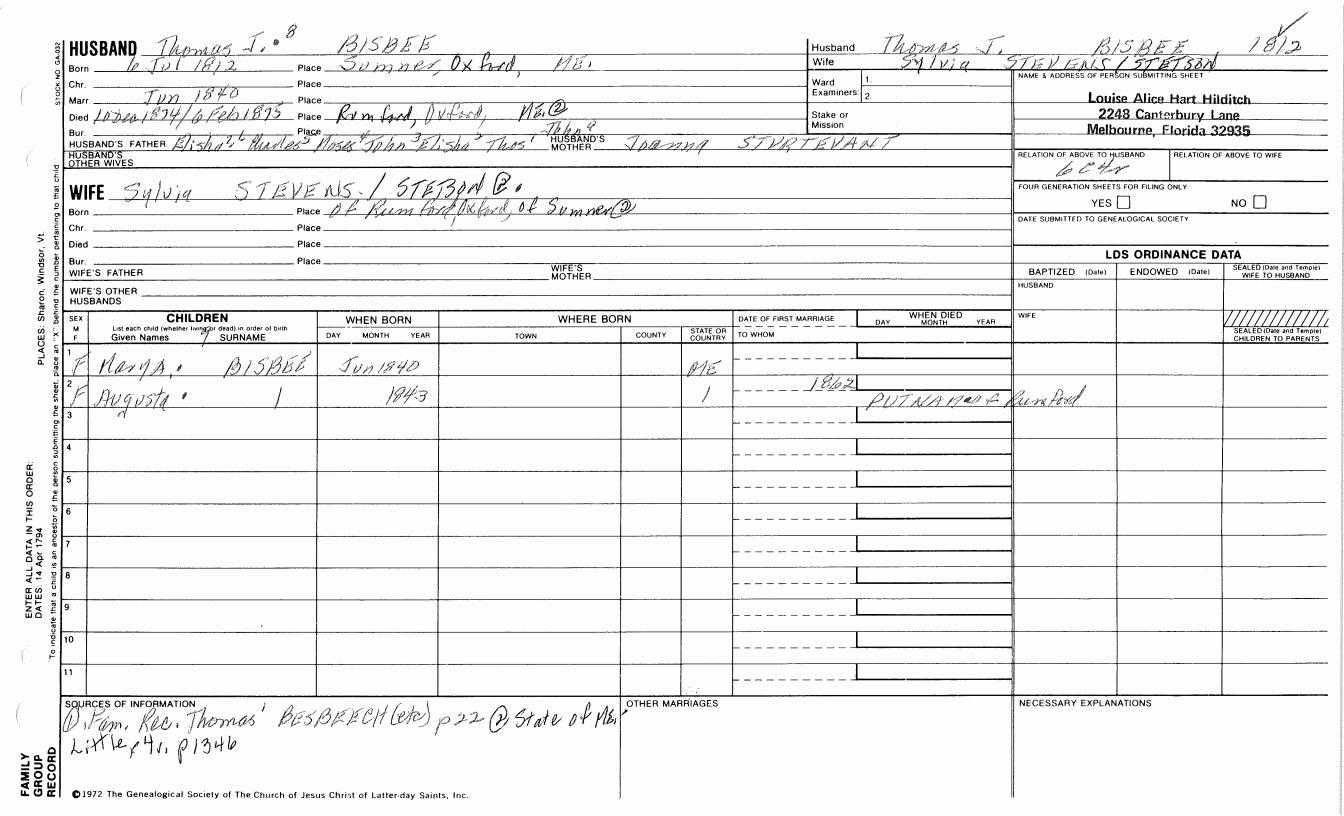 HUSBAND Thomas J. 8 BISBEE
Born 6 Jul 1812 Place Sumner, Oxford, ME.
Chr. Place
Marr Jun 1840 Place
Died 10 Dec 1874/6 Feb 1875 Place Rumford, Oxford, ME. ②
Bur. Place
HUSBAND'S FATHER Elisha Charles Moses John Elisha Thos John HUSBAND'S MOTHER Joanna STURTEVANT
HUSBAND'S OTHER WIVES
WIFE Sylvia STEVENS. / STETSON ②.
Born Place of Rumford, Oxford, of Sumner ②
Chr. Place
Died Place
Bur. Place
WIFE'S FATHER WIFE'S MOTHER
WIFE'S OTHER HUSBANDS
Husband Thomas J. BISBEE, 1812
Wife Sylvia STEVENS / STETSON
Ward Examiners 1. 2.
Stake or Mission
NAME & ADDRESS OF PERSON SUBMITTING SHEET
Louise Alice Hart Hilditch
2248 Canterbury Lane
Melbourne, Florida 32935
RELATION OF ABOVE TO HUSBAND RELATION OF ABOVE TO WIFE
6C4r
FOUR GENERATION SHEETS FOR FILING ONLY
YES NO
DATE SUBMITTED TO GENEALOGICAL SOCIETY
LDS ORDINANCE DATA
BAPTIZED (Date) ENDOWED (Date) SEALED (Date and Temple) WIFE TO HUSBAND
HUSBAND
WIFE
SEALED (Date and Temple) CHILDREN TO PARENTS
SEX M F
CHILDREN
List each child (whether living or dead) in order of birth
Given Names SURNAME
WHEN BORN
DAY MONTH YEAR
WHERE BORN
TOWN COUNTY STATE OR COUNTRY
DATE OF FIRST MARRIAGE
TO WHOM
WHEN DIED
DAY MONTH YEAR
1 F Mary A. BISBEE Jun 1840 ME
2 F Augusta 1 1843 1 1862
PUTNAM of Rumford
3
4
5
6
7
8
9
10
11
SOURCES OF INFORMATION
①. Fam. Rec. Thomas' BESBEECH (etc) p 22 ② State of ME,
Little, 4v. p1346
OTHER MARRIAGES
NECESSARY EXPLANATIONS
©1972 The Genealogical Society of The Church of Jesus Christ of Latter-day Saints, Inc.
STOCK NO. GA-032
To indicate that a child is an ancestor of the person submitting the sheet, place an "X" behind the number pertaining to that child
PLACES: Sharon, Windsor, Vt.
ENTER ALL DATA IN THIS ORDER:
DATES: 14 Apr 1794
FAMILY GROUP RECORD